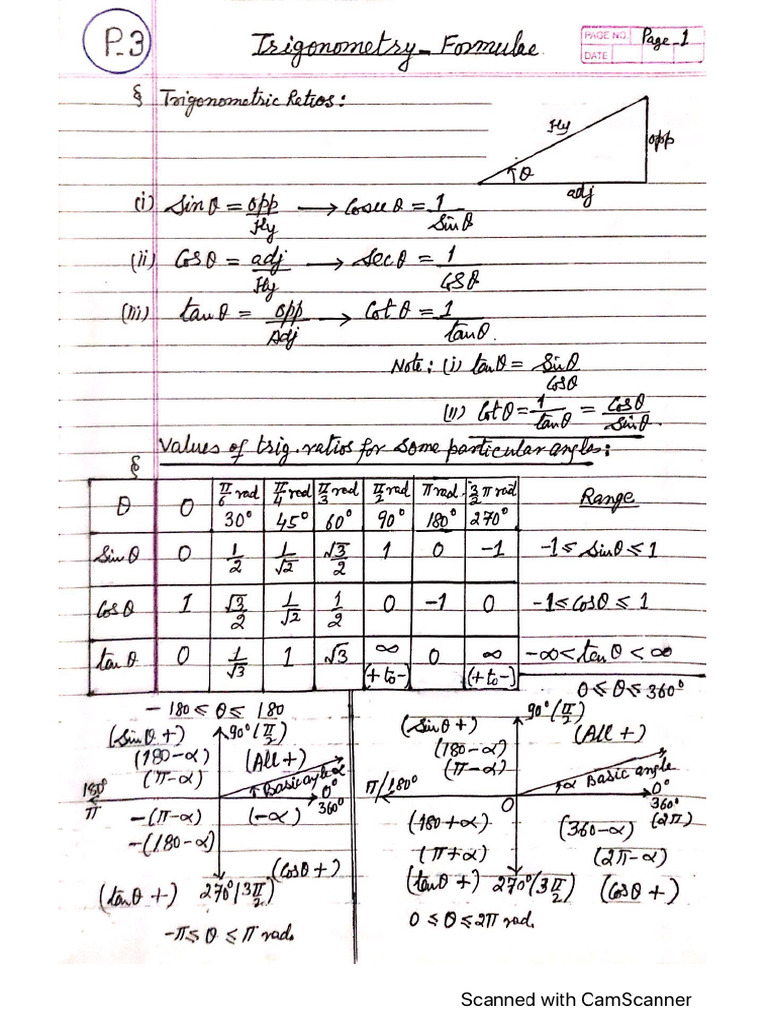 P-3
Trigonometry - Formulae
PAGE NO. Page-1
DATE
§ Trigonometric Ratios:
Hy
opp
θ
adj
(i) Sinθ = opp/Hy → Cosecθ = 1/Sinθ
(ii) Cosθ = adj/Hy → Secθ = 1/Cosθ
(iii) tanθ = opp/Adj → Cotθ = 1/tanθ.
Note: (i) tanθ = Sinθ/Cosθ
(ii) Cotθ = 1/tanθ = Cosθ/Sinθ.
§ Values of trig. ratios for some particular angles:
θ 0 π/6 rad 30° π/4 rad 45° π/3 rad 60° π/2 rad 90° π rad 180° 3/2 π rad 270° Range
Sinθ 0 1/2 1/√2 √3/2 1 0 -1 -1 ≤ Sinθ ≤ 1
Cosθ 1 √3/2 1/√2 1/2 0 -1 0 -1 ≤ Cosθ ≤ 1
tanθ 0 1/√3 1 √3 ∞ (+ to -) 0 ∞ (+ to -) -∞ < tanθ < ∞
-180 ≤ θ ≤ 180
90° (π/2)
(Sinθ +)
(180-α)
(π-α)
(All +)
Basic angle α
180°
π
0°
360°
-(π-α)
-(180-α)
(-α)
(Cosθ +)
(tanθ +)
270° (3π/2)
-π ≤ θ ≤ π rad.
0 ≤ θ ≤ 360°
90° (π/2)
(Sinθ +)
(180-α)
(π-α)
(All +)
α Basic angle
π/180°
0
0°
360°
(2π)
(180+α)
(π+α)
(360-α)
(2π-α)
(tanθ +)
270° (3π/2)
(Cosθ +)
0 ≤ θ ≤ 2π rad.
Scanned with CamScanner